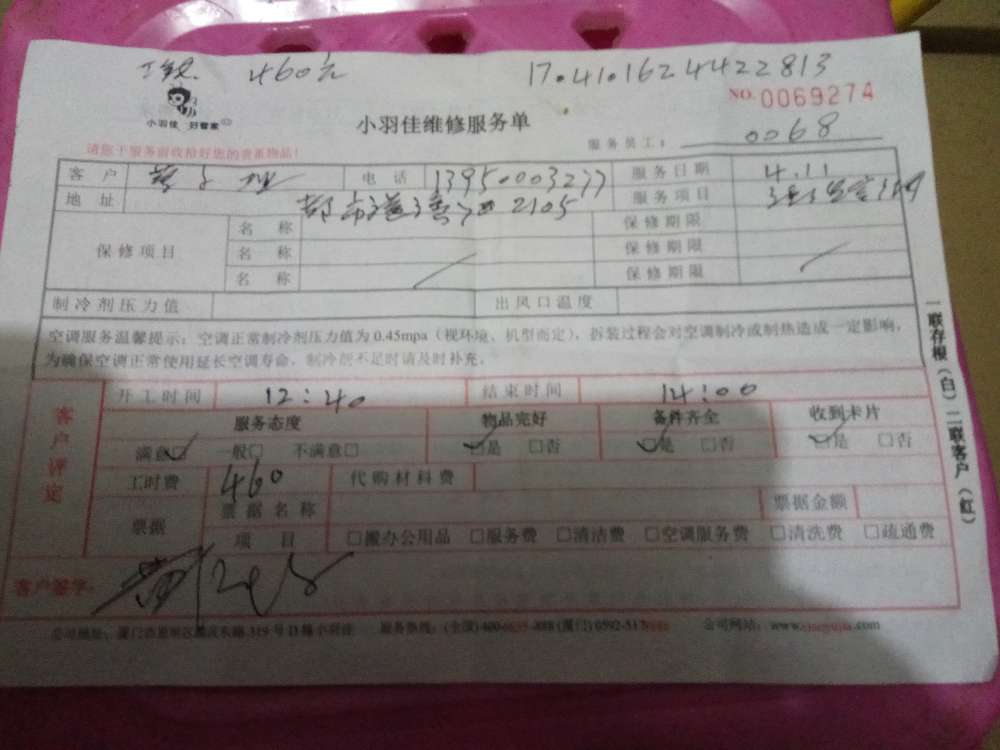 460元 17.41.1624422813
NO. 0069274
小羽佳 好管家
小羽佳维修服务单
服务员工： 0068
请您于服务前收拾好您的贵重物品！
客 户 电 话 13950003277 服务日期 4.11
地 址 2105 服务项目
保修项目 名 称 保修期限
名 称 保修期限
名 称 保修期限
制冷剂压力值 出风口温度
空调服务温馨提示：空调正常制冷剂压力值为0.45mpa（视环境、机型而定），拆装过程会对空调制冷或制热造成一定影响，
为确保空调正常使用延长空调寿命，制冷剂不足时请及时补充。
客户评定
开工时间 12:40 结束时间 14:00
服务态度 物品完好 备件齐全 收到卡片
满意☑ 一般□ 不满意□ ☑是 □否 ☑是 □否 ☑是 □否
工时费 460 代购材料费
票据 票据名称 票据金额
项 目 □搬办公用品 □服务费 □清洁费 □空调服务费 □清洗费 □疏通费
客户签字：
公司地址：厦门市 319号 小羽佳 服务热线：(全国)400 (厦门)0592 公司网站：www.xiaoyujia.com
一联存根（白）二联客户（红）